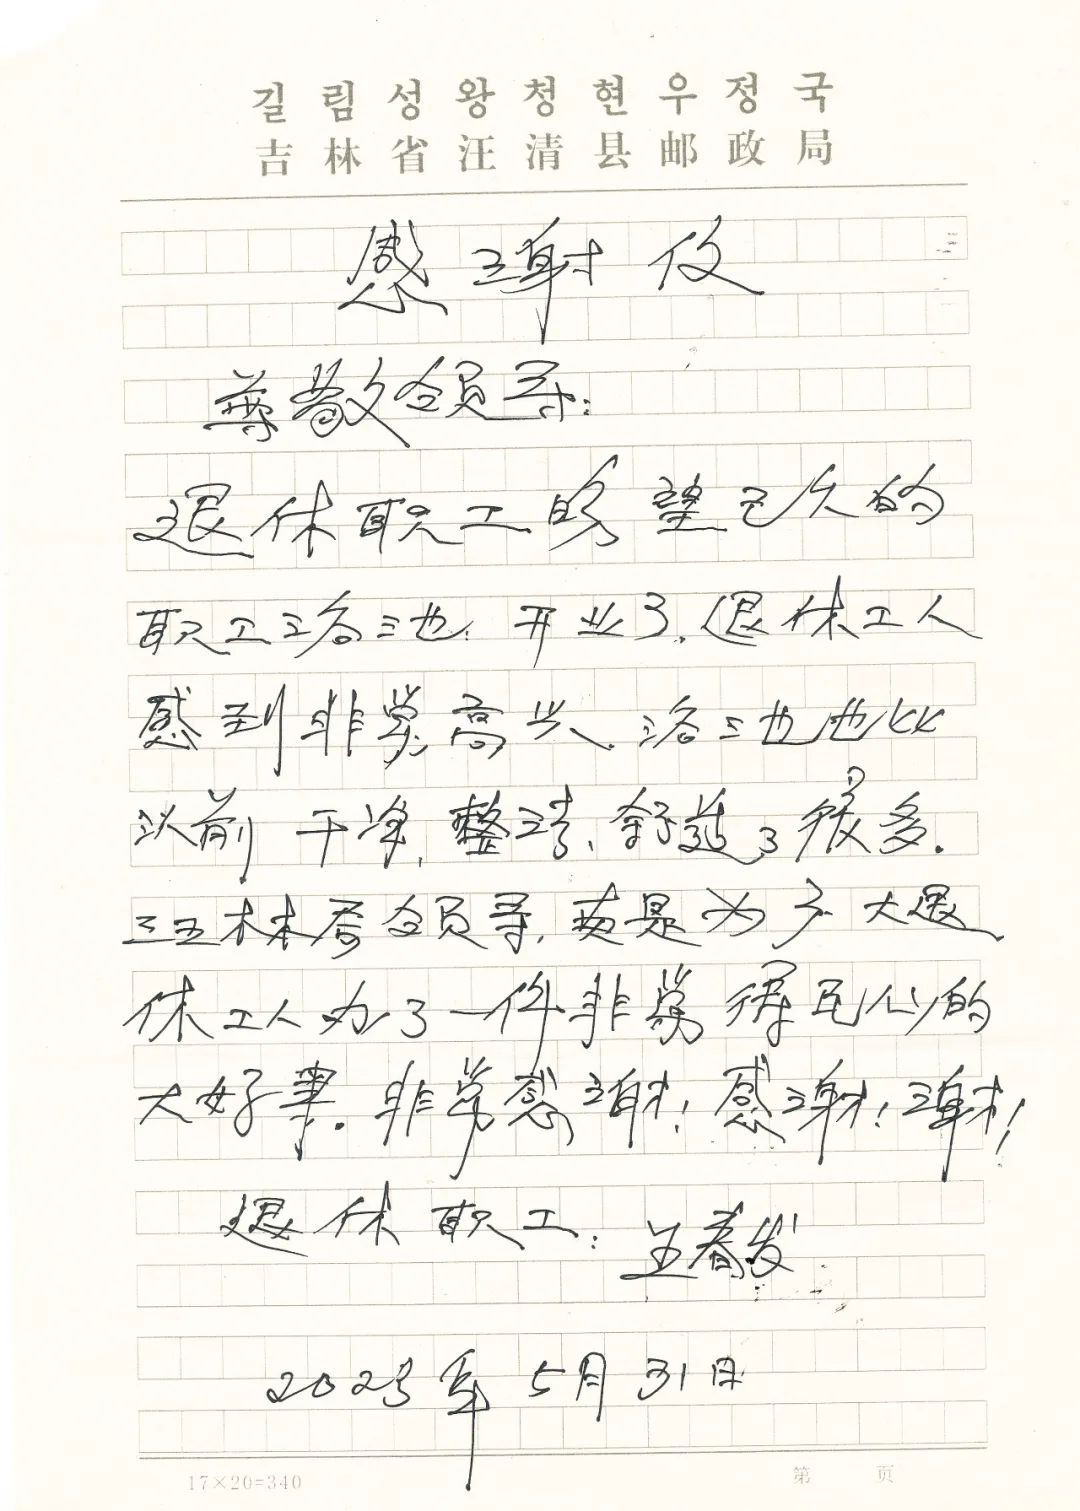 길림성왕청현우정국
吉林省汪清县邮政局
感谢
尊敬领导：
退休职工盼望已久的
职工浴池，开业了，退休工人
感到非常高兴，浴池也比
以前干净，整洁，舒适了很多。
领导，真是为广大退
休工人办了一件非常得民心的
大好事。非常感谢！感谢！谢！
退休职工：王春发
2023年5月31日
17×20=340
第 页